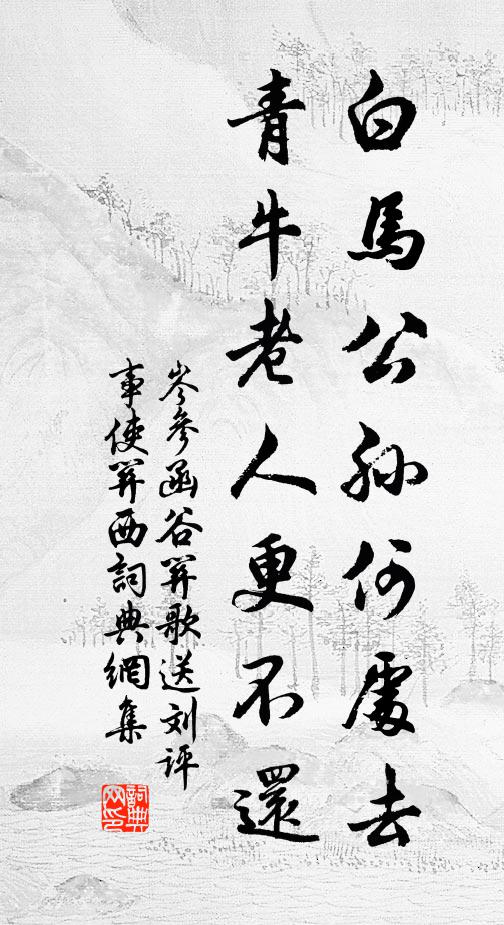 白馬公孫何處去
青牛老人更不還
岑參函谷關歌送刘評
事使關西詞典網集